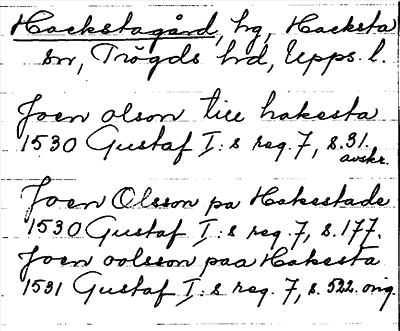 Hackstagård, hg, Hacksta
sn, Trögds hd, Upps. l.
Joen olson till hakesta
1530 Gustaf I:s reg. 7, s. 31.
avskr.
Joen Olsson pa Hakestade
1530 Gustaf I:s reg. 7, s. 177.
Joen oolsson paa Hakesta
1531 Gustaf I:s reg. 7, s. 522. orig.